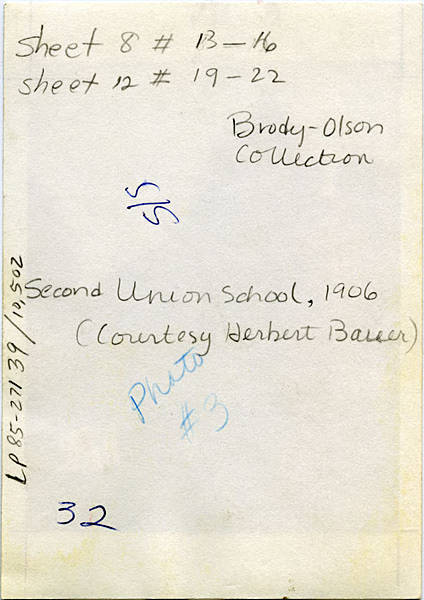 Sheet 8 # 13-16
sheet 12 # 19-22
Brody-Olson
Collection
5/5
Second Union School, 1906
(Courtesy Herbert Bauer)
Photo
#3
LP 85-271 39/10,502
32